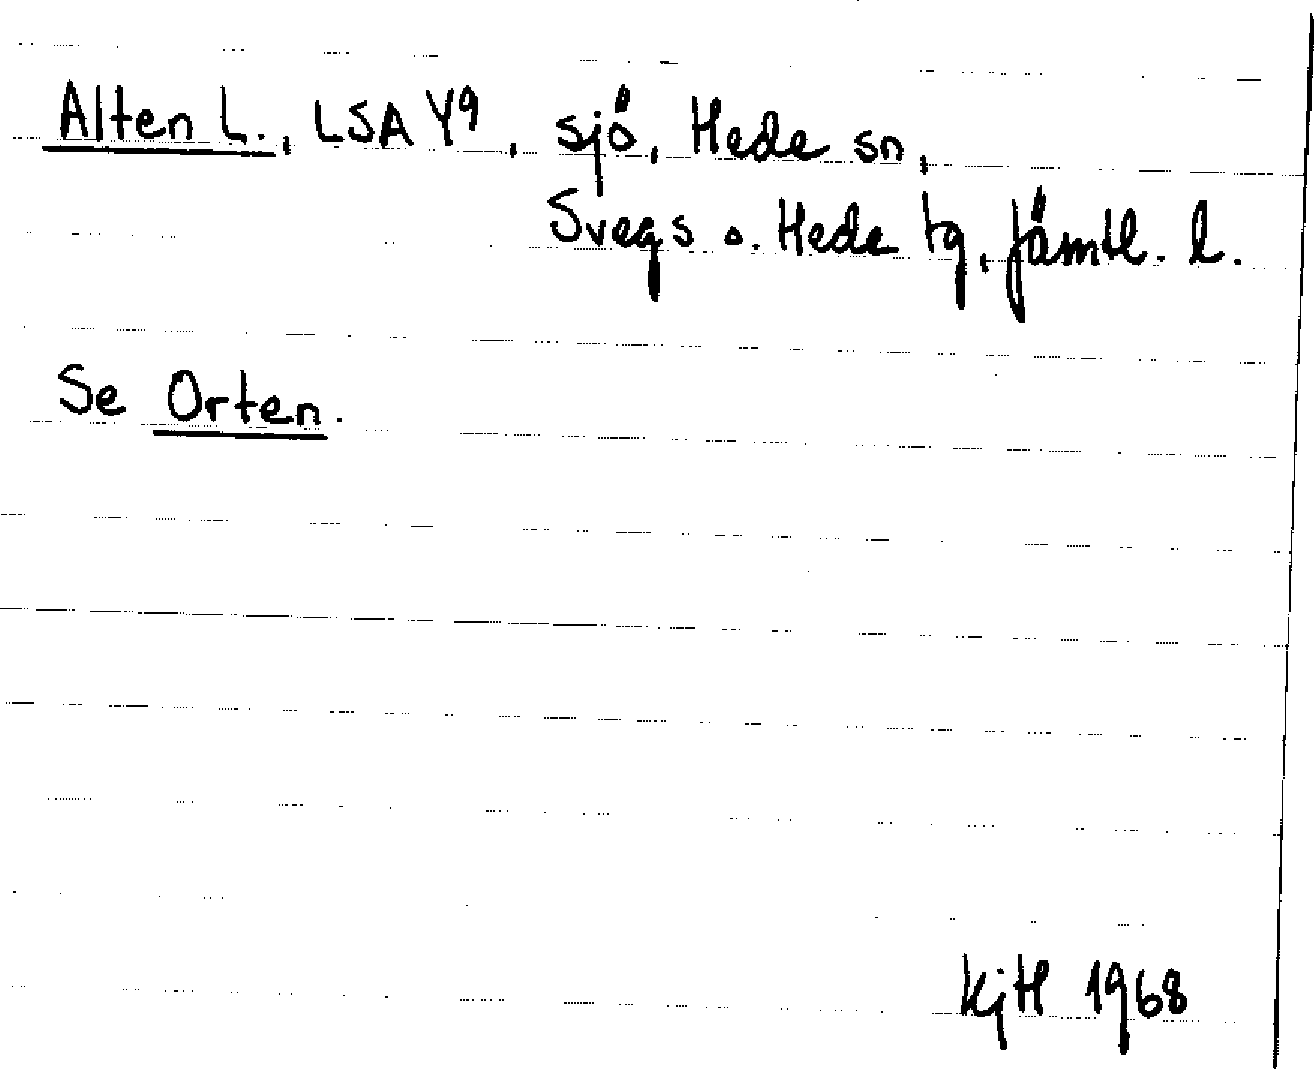 Alten L., LSA Y9, sjö, Hede sn,
Svegs o. Hede tg, Jämtl. l.
Se Orten.
KjH 1968